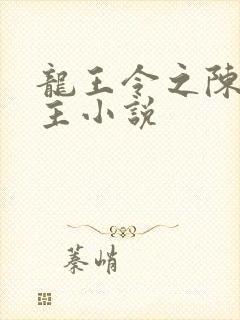 龍王令之陳
王小說
蓁峭